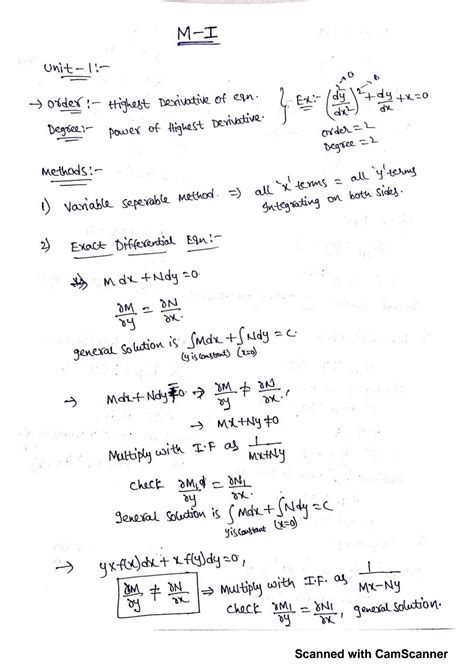 M-I
Unit-1:-
→ Order:- Highest Derivative of eqn.
Degree:- power of Highest Derivative.
Ex:- (dy/dx²)² + dy/dx + x = 0
order = 2
Degree = 2
Methods:-
1) Variable seperable method. ⇒ all 'x' terms = all 'y' terms
Integrating on both sides.
2) Exact Differential Eqn:-
Mdx + Ndy = 0
∂M/∂y = ∂N/∂x.
general solution is ∫Mdx + ∫Ndy = C.
(y is constant) (x=0)
→ Mdx + Ndy ≠ 0 → ∂M/∂y ≠ ∂N/∂x,
→ Mx + Ny ≠ 0
Multiply with I.F as 1/Mx+Ny
Check ∂M₁/∂y = ∂N₁/∂x.
General solution is ∫Mdx + ∫Ndy = C
y is constant (x=0)
→ yxf(x)dx + xf(y)dy = 0,
∂M/∂y ≠ ∂N/∂x ⇒ Multiply with I.F. as 1/Mx-Ny
Check ∂M₁/∂y = ∂N₁/∂x, general solution.
Scanned with CamScanner